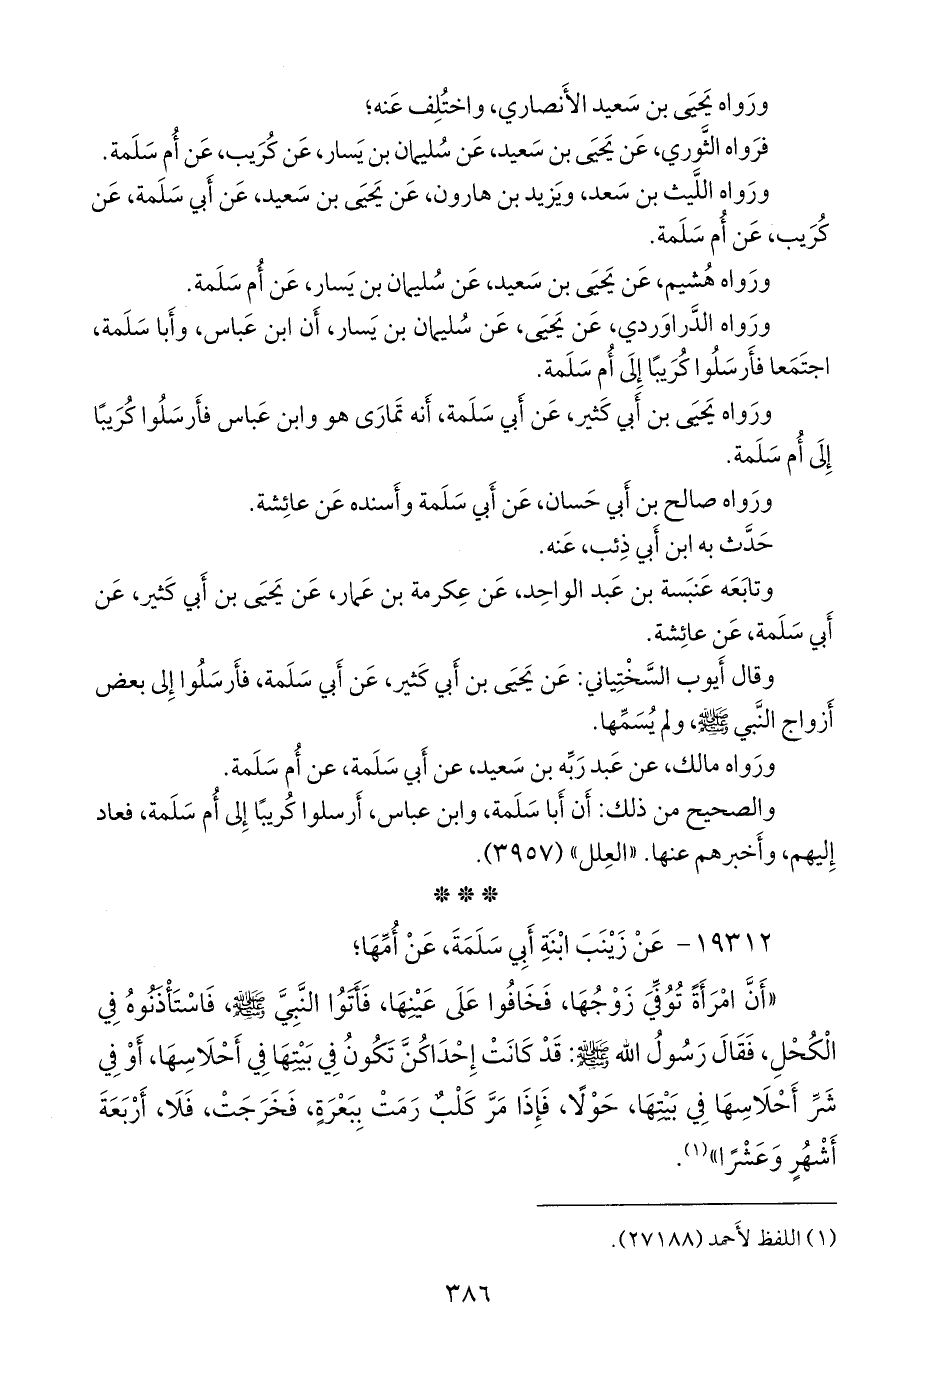 ورَواه يَحيَى بن سَعيد الأَنصاري، واختُلِف عَنه؛
فرَواه الثَّوري، عَن يَحيَى بن سَعيد، عَن سُليمان بن يَسار، عَن كُرَيب، عَن أُم سَلَمة.
ورَواه اللَّيث بن سَعد، ويَزيد بن هارون، عَن يَحيَى بن سَعيد، عَن أَبي سَلَمة، عَن
كُرَيب، عَن أُم سَلَمة.
ورَواه هُشيم، عَن يَحيَى بن سَعيد، عَن سُليمان بن يَسار، عَن أُم سَلَمة.
ورَواه الدَّراوَردي، عَن يَحيَى، عَن سُليمان بن يَسار، أَن ابن عَباس، وأَبا سَلَمة،
اجتَمَعا فأَرسَلُوا كُرَيبًا إِلَى أُم سَلَمة.
ورَواه يَحيَى بن أَبي كَثير، عَن أَبي سَلَمة، أَنه تمَارَى هو وابن عَباس فأَرسَلُوا كُرَيبًا
إِلَى أُم سَلَمة.
ورَواه صالح بن أَبي حَسان، عَن أَبي سَلَمة وأَسنده عَن عائِشة.
حَدَّث به ابن أَبي ذِئب، عَنه.
وتابَعَه عَنبَسة بن عَبد الواحِد، عَن عِكرمة بن عَمار، عَن يَحيَى بن أَبي كَثير، عَن
أَبي سَلَمة، عَن عائِشة.
وقال أَيوب السَّخْتِياني: عَن يَحيَى بن أَبي كَثير، عَن أَبي سَلَمة، فأَرسَلُوا إِلى بعض
أَزواج النَّبي ﷺ، ولم يُسَمِّها.
ورَواه مالك، عن عَبد رَبِّه بن سَعيد، عن أَبي سَلَمة، عن أُم سَلَمة.
والصحيح من ذلك: أَن أَبا سَلَمة، وابن عباس، أَرسلوا كُريبًا إِلى أُم سَلَمة، فعاد
إِليهم، وأَخبرهم عنها. «العِلل» (٣٩٥٧).
* * *
١٩٣١٢- عَنْ زَيْنَبَ ابْنَةِ أَبِي سَلَمَةَ، عَنْ أُمِّهَا؛
«أَنَّ امْرَأَةً تُوُفِّيَ زَوْجُهَا، فَخَافُوا عَلَى عَيْنِهَا، فَأَتَوُا النَّبِيَّ ﷺ، فَاسْتَأْذَنُوهُ فِي
الْكُحْلِ، فَقَالَ رَسُولُ الله ﷺ: قَدْ كَانَتْ إِحْدَاكُنَّ تَكُونُ فِي بَيْتِهَا فِي أَحْلَاسِهَا، أَوْ فِي
شَرِّ أَحْلَاسِهَا فِي بَيْتِهَا، حَوْلًا، فَإِذَا مَرَّ كَلْبٌ رَمَتْ بِبَعْرَةٍ، فَخَرَجَتْ، فَلَا، أَرْبَعَةَ
أَشْهُرٍ وَعَشْرًا»(١).
(١) اللفظ لأَحمد (٢٧١٨٨).
٣٨٦